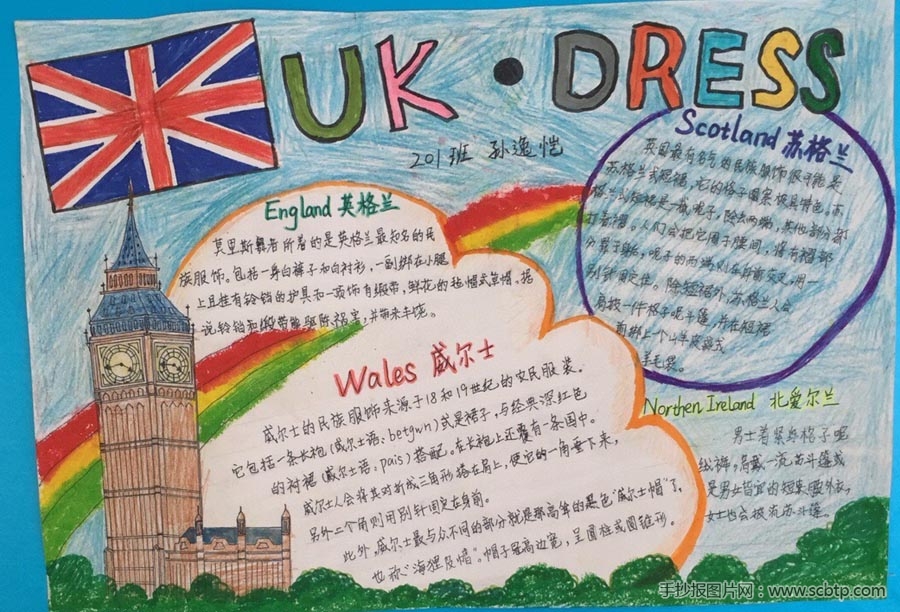 UK · DRESS
201班 孙逸恺
England 英格兰
莫里斯舞者所着的是英格兰最知名的民
族服饰。包括一身白裤子和白衬衫,一副绑在小腿
上且挂有铃铛的护具和一顶饰有缎带、鲜花的毡帽或草帽。据
说铃铛和缎带能驱除祸害,并带来丰饶。
Scotland 苏格兰
英国最有名的民族服饰很可能是
苏格兰式短裙,它的格子图案极具特色。苏
格兰式短裙是一截呢子,除去两端,其他部分都
打着褶。人们会把它围于腰间,将有褶部
分置于后,呢子的两端则在身前交叉,用
别针固定住。除短裙外,苏格兰人会
肩披一件格子呢斗篷,并在短裙
前绑上一个山羊皮或
羊毛袋。
Wales 威尔士
威尔士的民族服饰来源于18和19世纪的农民服装。
它包括一条长袍(威尔士语:betgwn)式是裙子,与经典深红色
的衬裙(威尔士语:pais)搭配。在长袍上还覆有一条围巾。
威尔士人会将其对折成三角形搭在肩上,使它的一角垂下来,
另外二个角则用别针固定在身前。
此外,威尔士最与众不同的部分就是那高耸的黑色"威尔士帽"了,
也称"海狸皮帽"。帽子冠高边宽,呈圆柱或圆锥形。
Northen Ireland 北爱尔兰
男士着紧身格子呢
纵裤,肩戴一流苏斗篷或
是男女皆宜的短款外衣,
女士也会披流苏斗篷。
手抄报图片网:www.scbtp.com